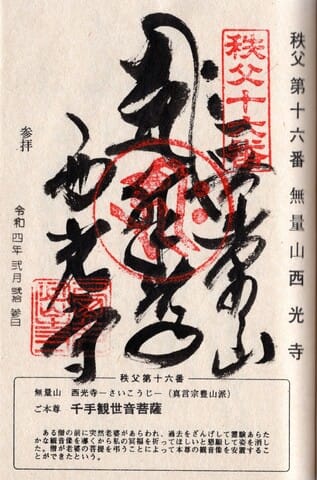 秩父 第十六番 無量山 西光寺
秩父十六番
無量山
西光寺
参拝
令和四年 弐月 弐拾 参日
秩父第十六番
無量山 西光寺―さいこうじ―(真言宗豊山派)
ご本尊 千手観世音菩薩
ある僧の前に突然老婆があらわれ、過去をざんげして霊験あらた
かな観音像を導くから私の冥福を祈ってほしいと懇願して姿を消し
た。僧が老婆の菩提を弔うことによって本尊の観音像を安置するこ
とができたという。